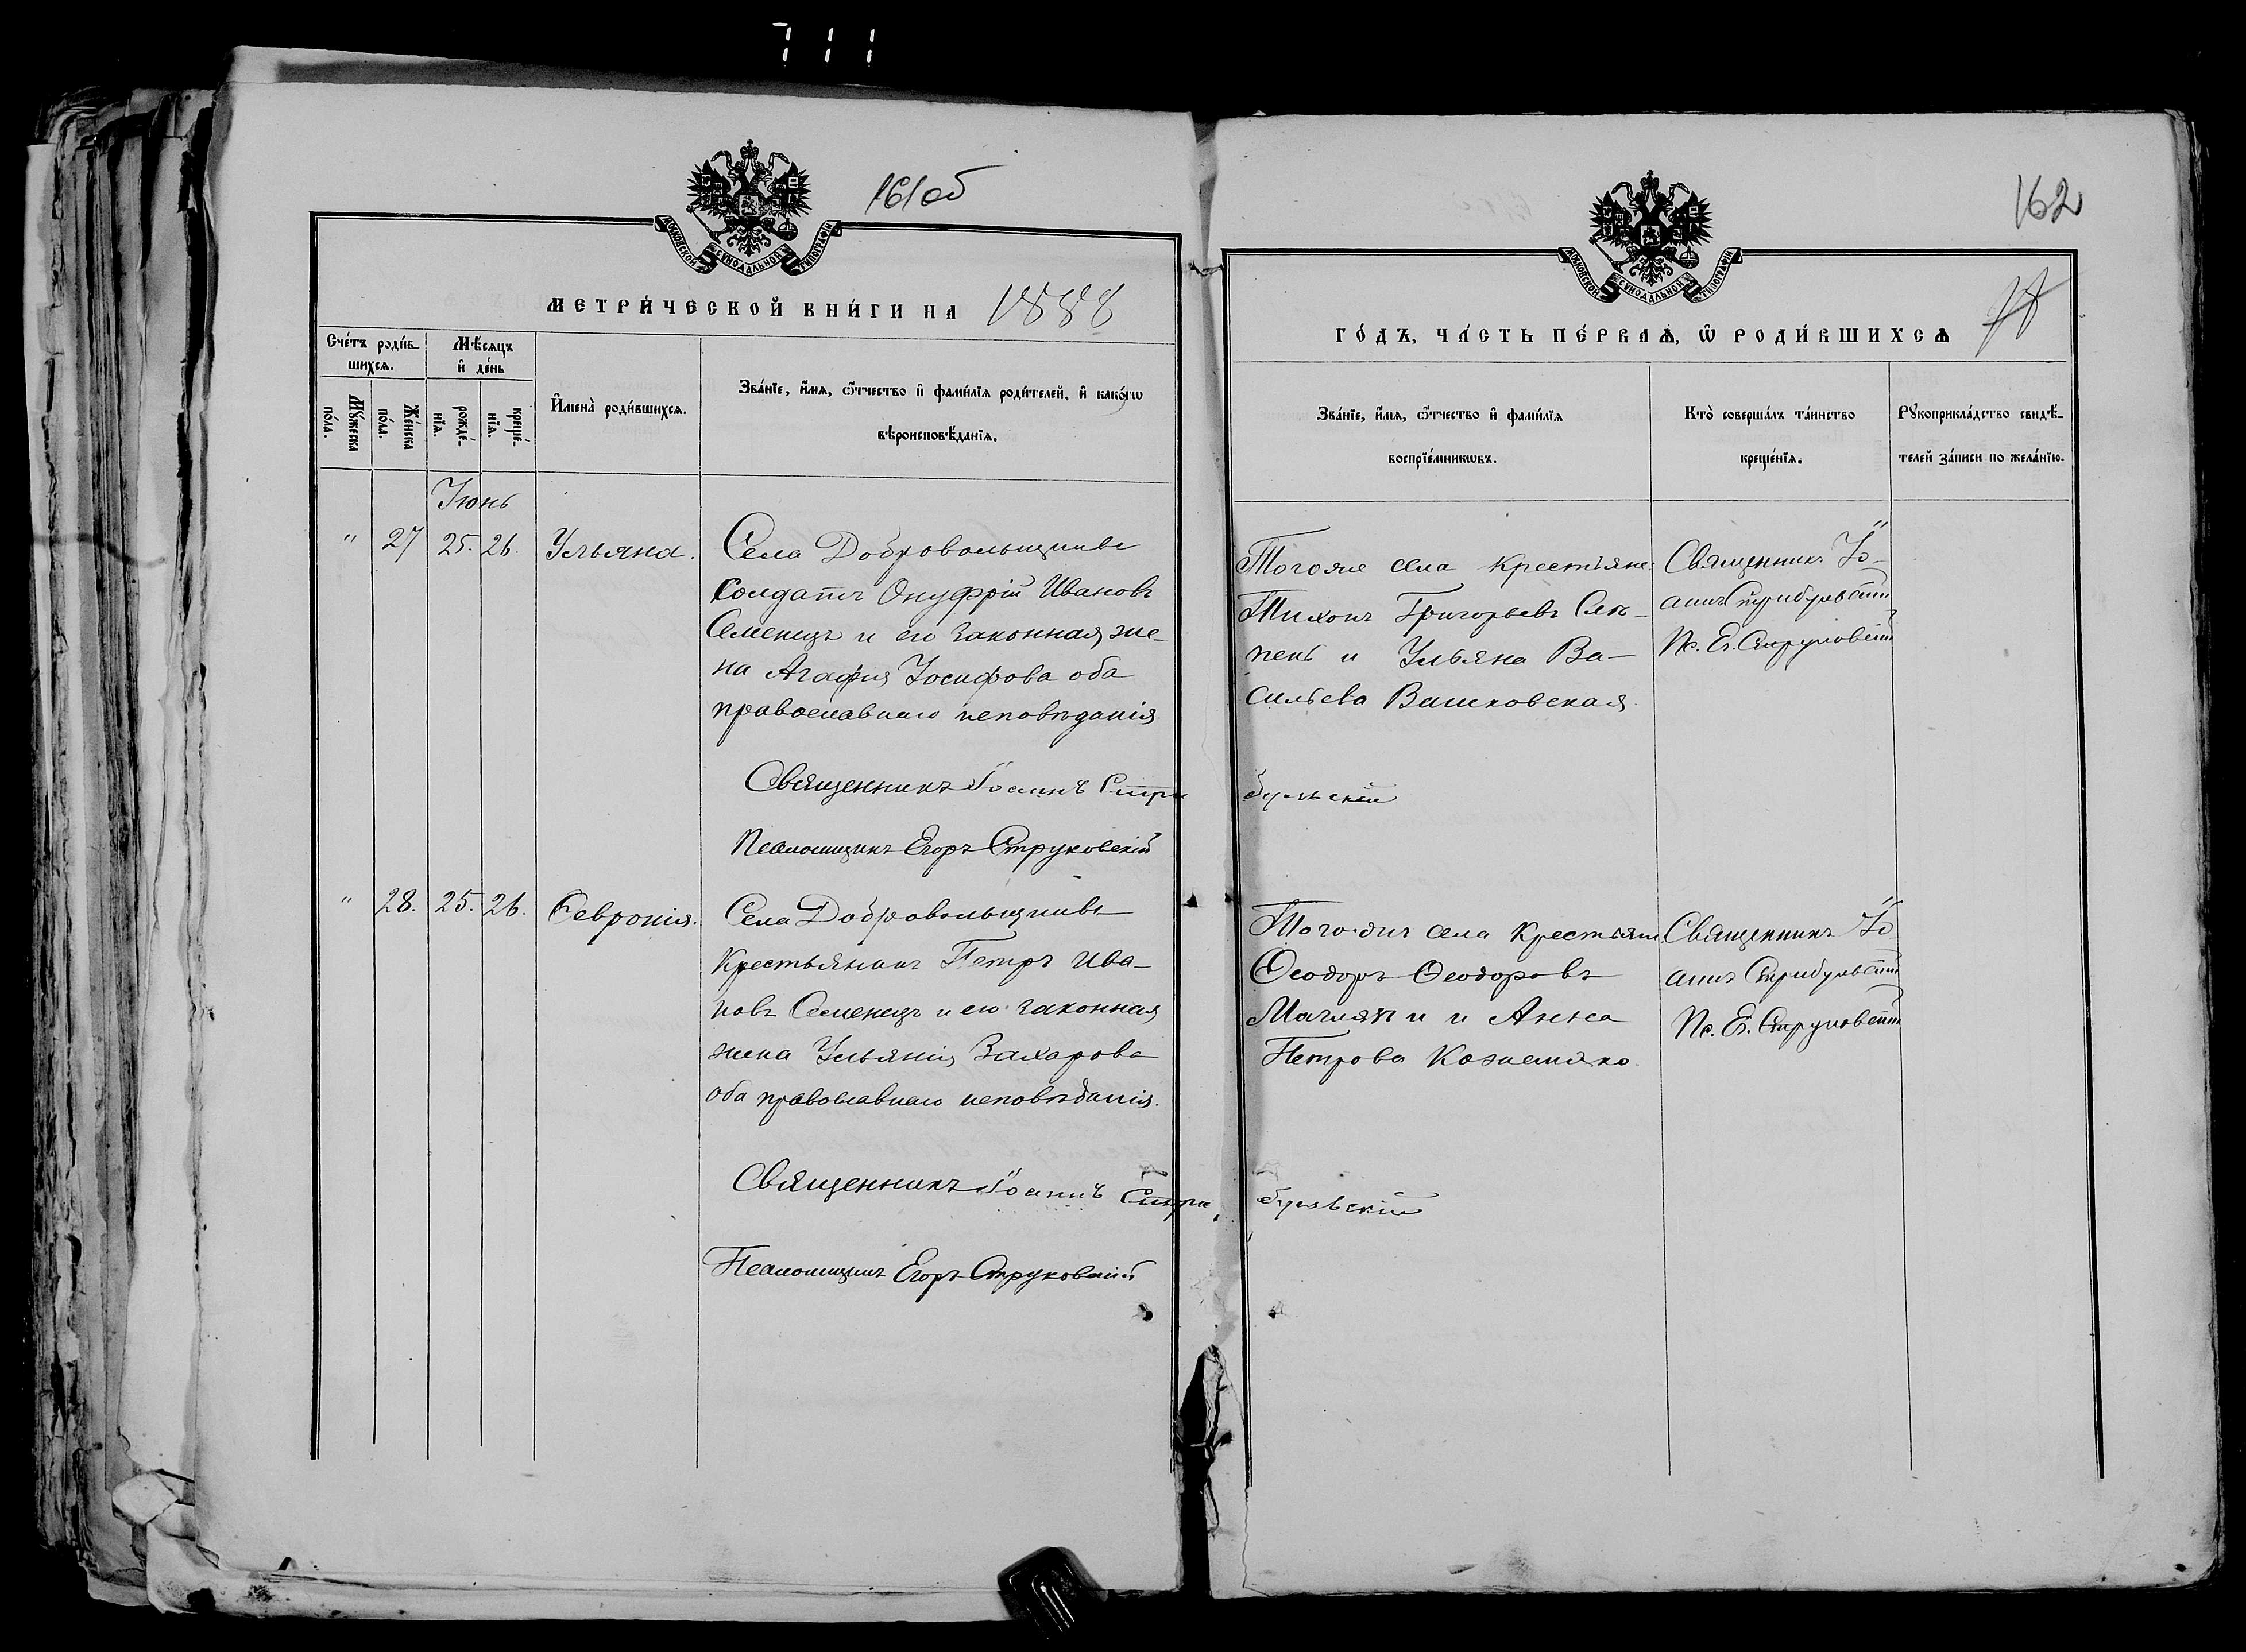 711
161об
МОСКОВСКОЙ СѴНОДАЛЬНОЙ ТИПОГРАФІИ
МЕТРИ́ЧЕСКОЙ КНИ́ГИ НА 1888
Сче́тъ роди́в-
шихсѧ.
Мѣ́сѧцъ
и҆ де́нь
Мꙋ́жеска
по́ла.
Же́нска
по́ла.
рожде́-
нїѧ.
креще́-
нїѧ.
И҆мена̀ роди́вшихсѧ.
Зва́нїе, и҆́мѧ, ѻ҆́тчество и҆ фами́лїѧ роди́телей, и҆ како́гѡ
вѣроисповѣ́данїѧ.
Іюнь
" 27 25. 26. Ульяна.
Села Добровольщины
Солдатъ Онуфрій Ивановъ
Семенецъ и его законная же-
на Агафія Іосифова оба
православнаго исповѣданія
Священникъ Іоаннъ Стри
Псаломщикъ Егоръ Струковскій
" 28. 25. 26. Февронія.
Села Добровольщины
Крестьянинъ Петръ Ива-
новъ Семенецъ и его законная
жена Ульянія Захарова
оба православнаго исповѣданія.
Священникъ Іоаннъ Стри
Псаломщикъ Егоръ Струковскій
162
МОСКОВСКОЙ СѴНОДАЛЬНОЙ ТИПОГРАФІИ
ГО́ДЪ, ЧА́СТЬ ПЕ́РВАѦ, Ѡ҆ РОДИ́ВШИХСѦ
Зва́нїе, и҆́мѧ, ѻ҆́тчество и҆ фами́лїѧ
воспрїе́мникѡвъ.
Кто̀ соверша́лъ та́инство
креще́нїѧ.
Рꙋкоприкла́дство свидѣ́-
телей за́писи по жела́нїю.
Тогоже села крестьяне
Тихонъ Григорьевъ
и Ульяна Ва-
сильева Вашковская.
Священникъ Іо-
аннъ Стрибульскій
Пс. Е. Струковскій
бульскій
Тогожъ села крестьяне
Ѳеодоръ Ѳеодоровъ
и Анна
Петрова Кожемяко.
Священникъ Іо
аннъ Стрибульскій
Пс. Е. Струковскій
бульскій